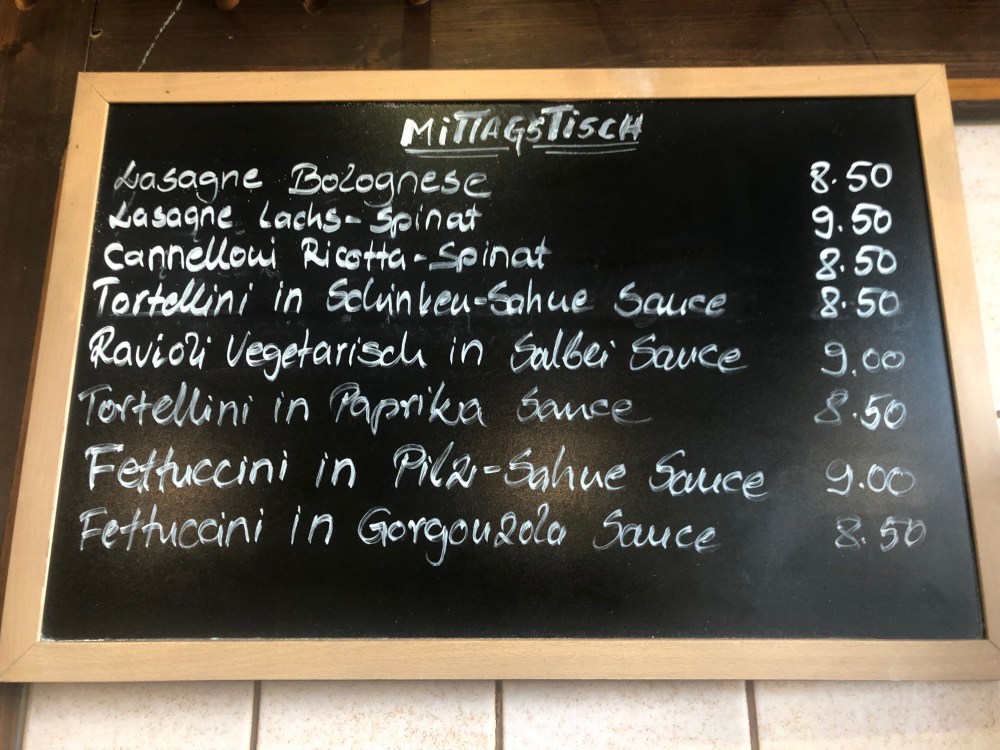 MITTAGSTISCH
Lasagne Bolognese 8.50
Lasagne Lachs-Spinat 9.50
Cannelloni Ricotta-Spinat 8.50
Tortellini in Schinken-Sahne Sauce 8.50
Ravioli Vegetarisch in Salbei Sauce 9.00
Tortellini in Paprika Sauce 8.50
Fettuccini in Pilz-Sahne Sauce 9.00
Fettuccini in Gorgonzola Sauce 8.50